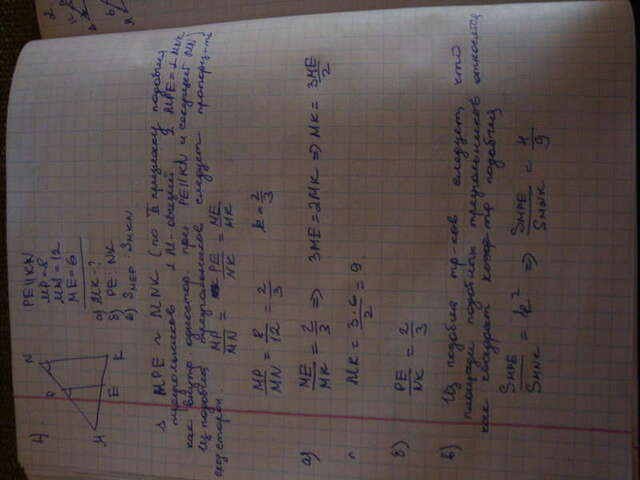 1)
N
P
M
E
K
PE||KN
MP=8
MN=12
ME=6
а) MK-?
б) PE:NK
в) S MEP : S MKN
△ MPE ~ MNK (по II признаку подобия
треугольников ∠M-общий ∠MPE=∠MNK
как при PE||KN и секущей MN)
Из подобия треугольников следует
сход сторон.
MP/MN = PE/NK = ME/MK
MP/MN = 8/12 = 2/3 k=2/3
а) ME/MK = 2/3 => 3ME=2MK => MK= 3ME/2
MK= 3·6/2 =9.
б) PE/NK = 2/3
в) Из подобия тр-ков следует, что
площади подобных треугольников
как квадрат подобия
S MPE/S MNK = k² => S MPE/S MNK = 4/9